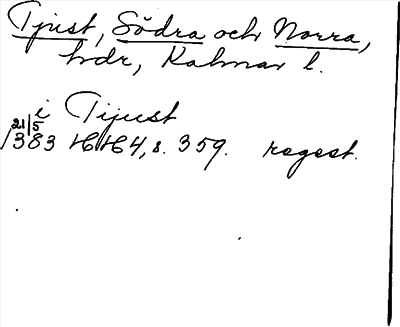 Tjust, Södra och Norra,
hdr, Kalmar l.
i Tijust
21/5
1383 HH 4, s. 359. regest.